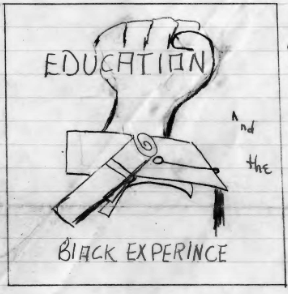 EDUCATION
And
the
BlACK EXPERINCE